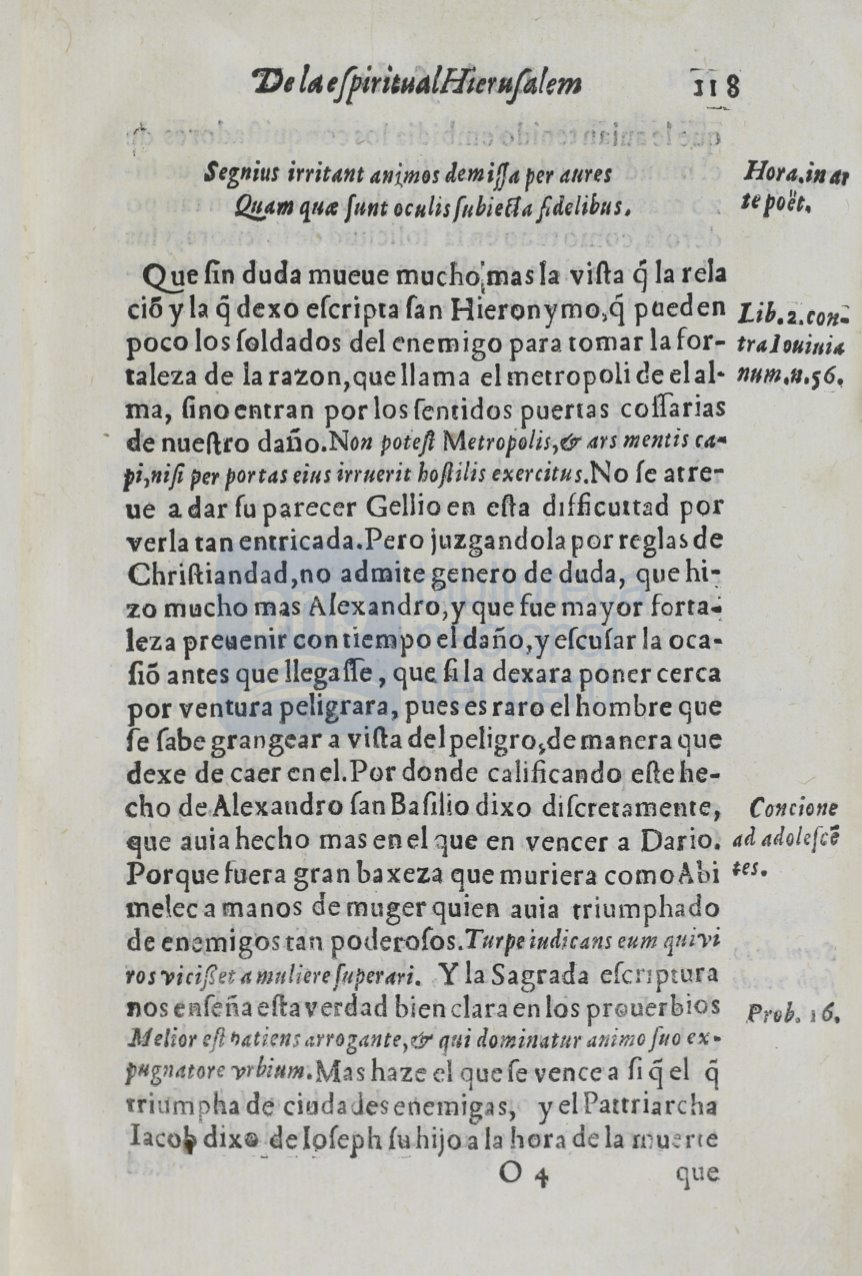 De la eſpiritual Hieruſalem 118
Segnius irritant animos demiſſa per aures
Quam quæ ſunt oculis ſubiecta fidelibus.
Hora. in ar
te poët.
Que ſin duda mueue mucho mas la viſta q̃ la rela
ciõ y la q̃ dexo eſcripta ſan Hieronymo, q̃ pueden
poco los ſoldados del enemigo para tomar la for-
taleza de la razon, que llama el metropoli de el al-
ma, ſino entran por los ſentidos puertas coſſarias
de nueſtro daño. Non poteſt Metropolis, & ars mentis ca-
pi, niſi per portas eius irruerit hoſtilis exercitus. No ſe atre-
ue a dar ſu parecer Gellio en eſta difficuttad por
verla tan entricada. Pero juzgandola por reglas de
Chriſtiandad, no admite genero de duda, que hi-
zo mucho mas Alexandro, y que fue mayor forta-
leza preuenir con tiempo el daño, y eſcuſar la oca-
ſiõ antes que llegaſſe, que ſi la dexara poner cerca
por ventura peligrara, pues es raro el hombre que
ſe ſabe grangear a viſta del peligro, de manera que
dexe de caer en el. Por donde calificando eſte he-
cho de Alexandro ſan Baſilio dixo diſcretamente,
que auia hecho mas en el que en vencer a Dario.
Porque fuera gran baxeza que muriera como Abi
melec a manos de muger quien auia triumphado
de enemigos tan poderoſos. Turpe iudicans eum qui vi
ros viciſſet a muliere ſuperari. Y la Sagrada eſcriptura
nos enſeña eſta verdad bien clara en los prouerbios
Melior eſt patiens arrogante, & qui dominatur animo ſuo ex-
pugnatore vrbium. Mas haze el que ſe vence a ſi q̃ el q̃
triumpha de ciudades enemigas, y el Pattriarcha
Iacob dixo de Ioſeph ſu hijo a la hora de la muerte
Lib. 2. con-
tra Iouinia
num. n. 56.
Concione
ad adoleſcẽ
tes.
Prob. 16.
O 4 que